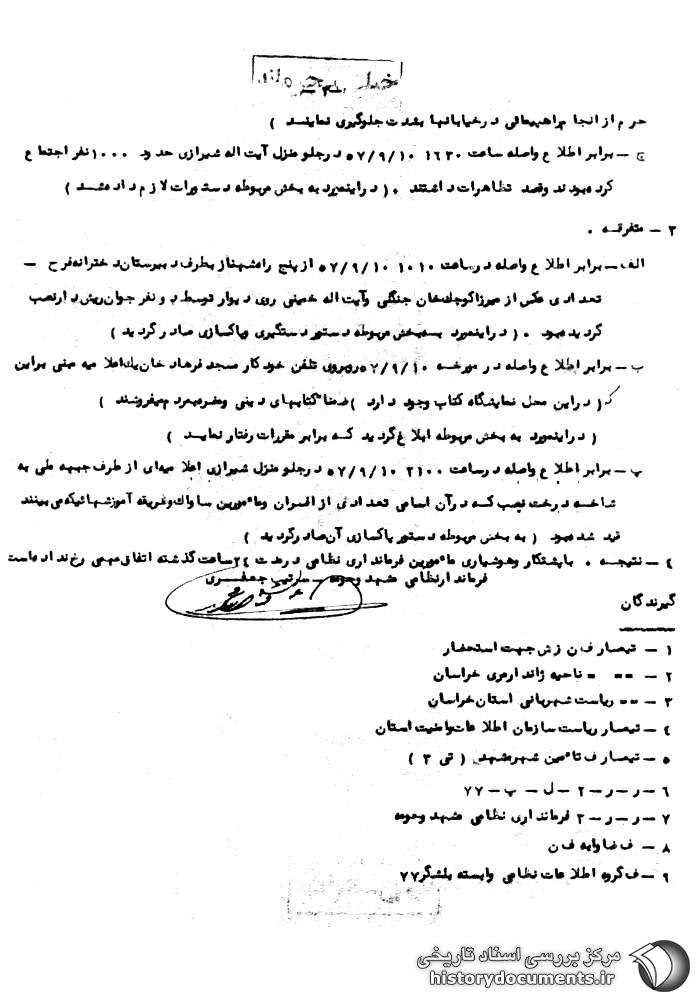 خیلی محرمانه
حرم از انجا راهپیمائی درخیابانها بشدت جلوگیری نمایند )
ج – برابر اطلاع واصله ساعت ۱۶۳۰ ۵۷/۹/۱۰ درجلو منزل آیت اله شیرازی حدود ۱۰۰۰ نفر اجتماع
کرده بودند وقصد تظاهرات داشتند ۰ ( دراینمورد به بخش مربوطه دستورات لازم داده شد )
۳ – متفرقه ۰
الف – برابر اطلاع واصله درساعت ۱۰۱۰ ۵۷/۹/۱۰ از پنج راه شهناز بطرف دبیرستان دخترانه فرح –
تعدادی عکس از میرزاکوچک خان جنگلی وآیت اله خمینی روی دیوار توسط دو نفر جوان ریش دارنصب
گردیده بود ۰ ( دراینمورد به بخش مربوطه دستور دستگیری وپاکسازی صادر گردید )
ب – برابر اطلاع واصله در مورخه ۵۷/۹/۱۰ روبروی تلفن خودکار مسجد فرهاد خان یک اعلامیه مبنی براین
که ( دراین محل نمایشگاه کتاب وجود دارد ) ضمنا" کتابهای دینی ومضره بمردم میفروشند )
( دراینمورد به بخش مربوطه ابلاغ گردید که برابر مقررات رفتار نمایند )
پ – برابر اطلاع واصله درساعت ۲۱۰۰ ۵۷/۹/۱۰ درجلو منزل شیرازی اعلامیه‌ای از طرف جبهه ملی به
شاخه درخت نصب که درآن اسامی تعدادی از افسران ومامورین ساواک وطریقه آموزشهائیکه می بینند
قید شده بود ( به بخش مربوطه دستور پاکسازی آن صادرگردید )
٤ – نتیجه ۰ باپشتکار وهوشیاری مامورین فرمانداری نظامی درمدت ۲٤ ساعت گذشته اتفاق مهمی رخ نداده است
فرماندارنظامی مشهد وحومه – سرتیپ جعفری
گیرندگان
۱ – تیمسار ف ن زش جهت استحضار
۲ – " " " ناحیه ژاندارمری خراسان
۳ – " " ریاست شهربانی استان خراسان
٤ – تیمسار ریاست سازمان اطلاعات وامنیت استان
۵ – تیمسار ف تامین شهرمشهد ( تی ۳ )
۶ – ر – ر – ۲ – ل – پ – ۷۷
۷ – ر – ر – ۳ فرمانداری نظامی مشهد وحومه
۸ – ف ضد اوایه ف ن
۹ – ف گروه اطلاعات نظامی وابسته بلشگر ۷۷
مرکز بررسی اسناد تاریخی
historydocuments.ir